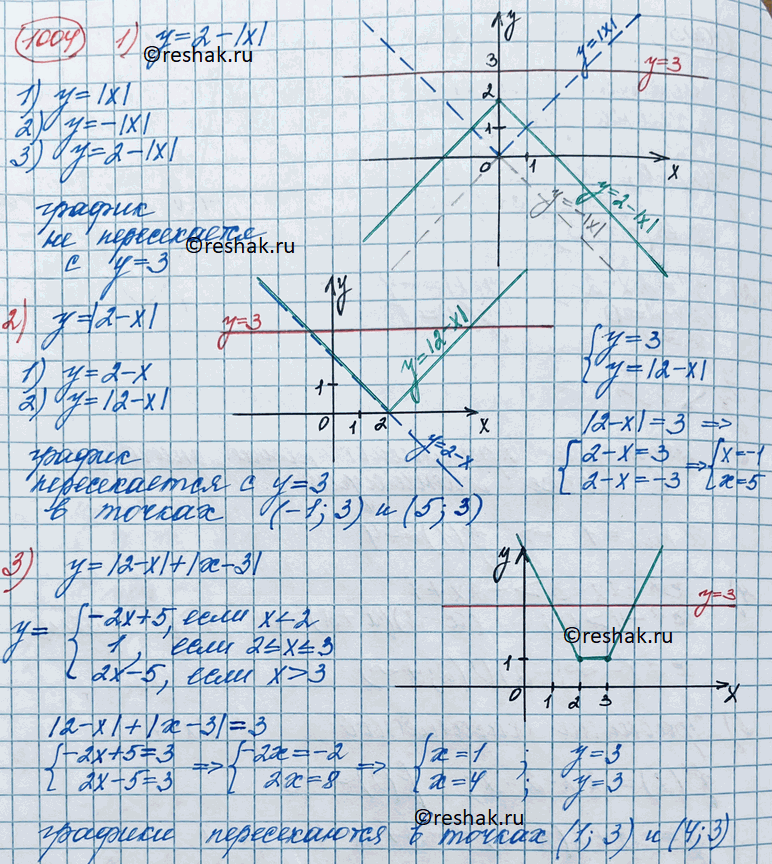 1004 1) y=2-|x|
©reshak.ru
1) y=|x|
2) y=-|x|
3) y=2-|x|
график
не пересекается
©reshak.ru
с y=3
y
3
2
1
0
1
x
y=|x|
y=3
y=-|x|
y=2-|x|
2) y=|2-x|
1) y=2-x
2) y=|2-x|
y
y=3
y=|2-x|
1
0
1
2
x
y=2-x
{ y=3
y=|2-x|
|2-x|=3 =>
{ 2-x=3
2-x=-3 => { x=-1
x=5
график
пересекается с y=3
в точках (-1; 3) и (5; 3)
3) y=|2-x|+|x-3|
y= { -2x+5, если x<2
1, если 2≤x≤3
2x-5, если x>3
y
y=3
©reshak.ru
1
0
1
2
3
x
|2-x|+|x-3|=3
{ -2x+5=3
2x-5=3 => { -2x=-2
2x=8 => { x=1 ; y=3
x=4 ; y=3
©reshak.ru
графики пересекаются в точках (1; 3) и (4; 3)